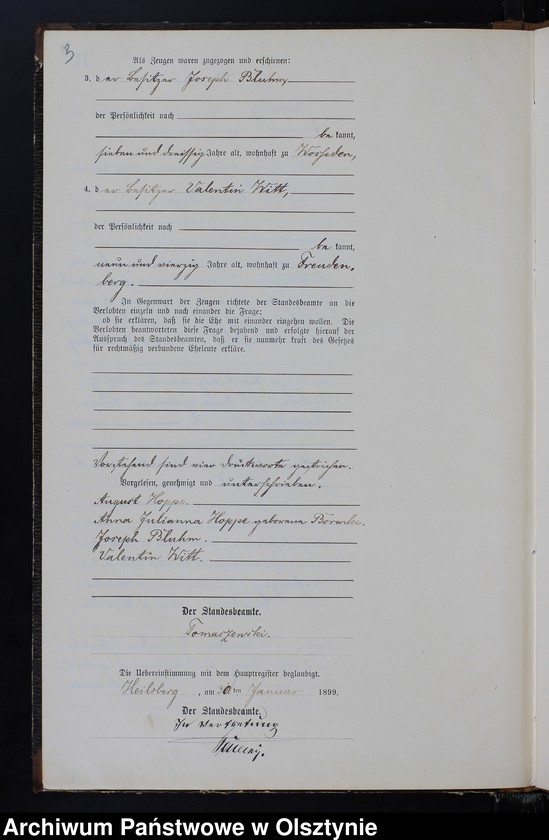 3
Als Zeugen waren zugezogen und erschienen:
3. der Besitzer Joseph Bluhm,
der Persönlichkeit nach
be kannt,
sieben und dreissig Jahre alt, wohnhaft zu Worheden,
4. der Besitzer Valentin Witt,
der Persönlichkeit nach
be kannt,
neun und vierzig Jahre alt, wohnhaft zu Freuden-
berg.
In Gegenwart der Zeugen richtete der Standesbeamte an die
Verlobten einzeln und nach einander die Frage:
ob sie erklären, daß sie die Ehe mit einander eingehen wollen. Die
Verlobten beantworteten diese Frage bejahend und erfolgte hierauf der
Ausspruch des Standesbeamten, daß er sie nunmehr kraft des Gesetzes
für rechtmäßig verbundene Eheleute erkläre.
Vorstehend sind vier Druckworte gestrichen.
Vorgelesen, genehmigt und unterschrieben.
August Hoppe.
Anna Julianna Hoppe geborene
Joseph Bluhm.
Valentin Witt.
Der Standesbeamte.
Tomaszewski.
Die Uebereinstimmung mit dem Hauptregister beglaubigt.
Heilsberg, am ten Januar 1899.
Der Standesbeamte.
In Vertretung
Archiwum Państwowe w Olsztynie